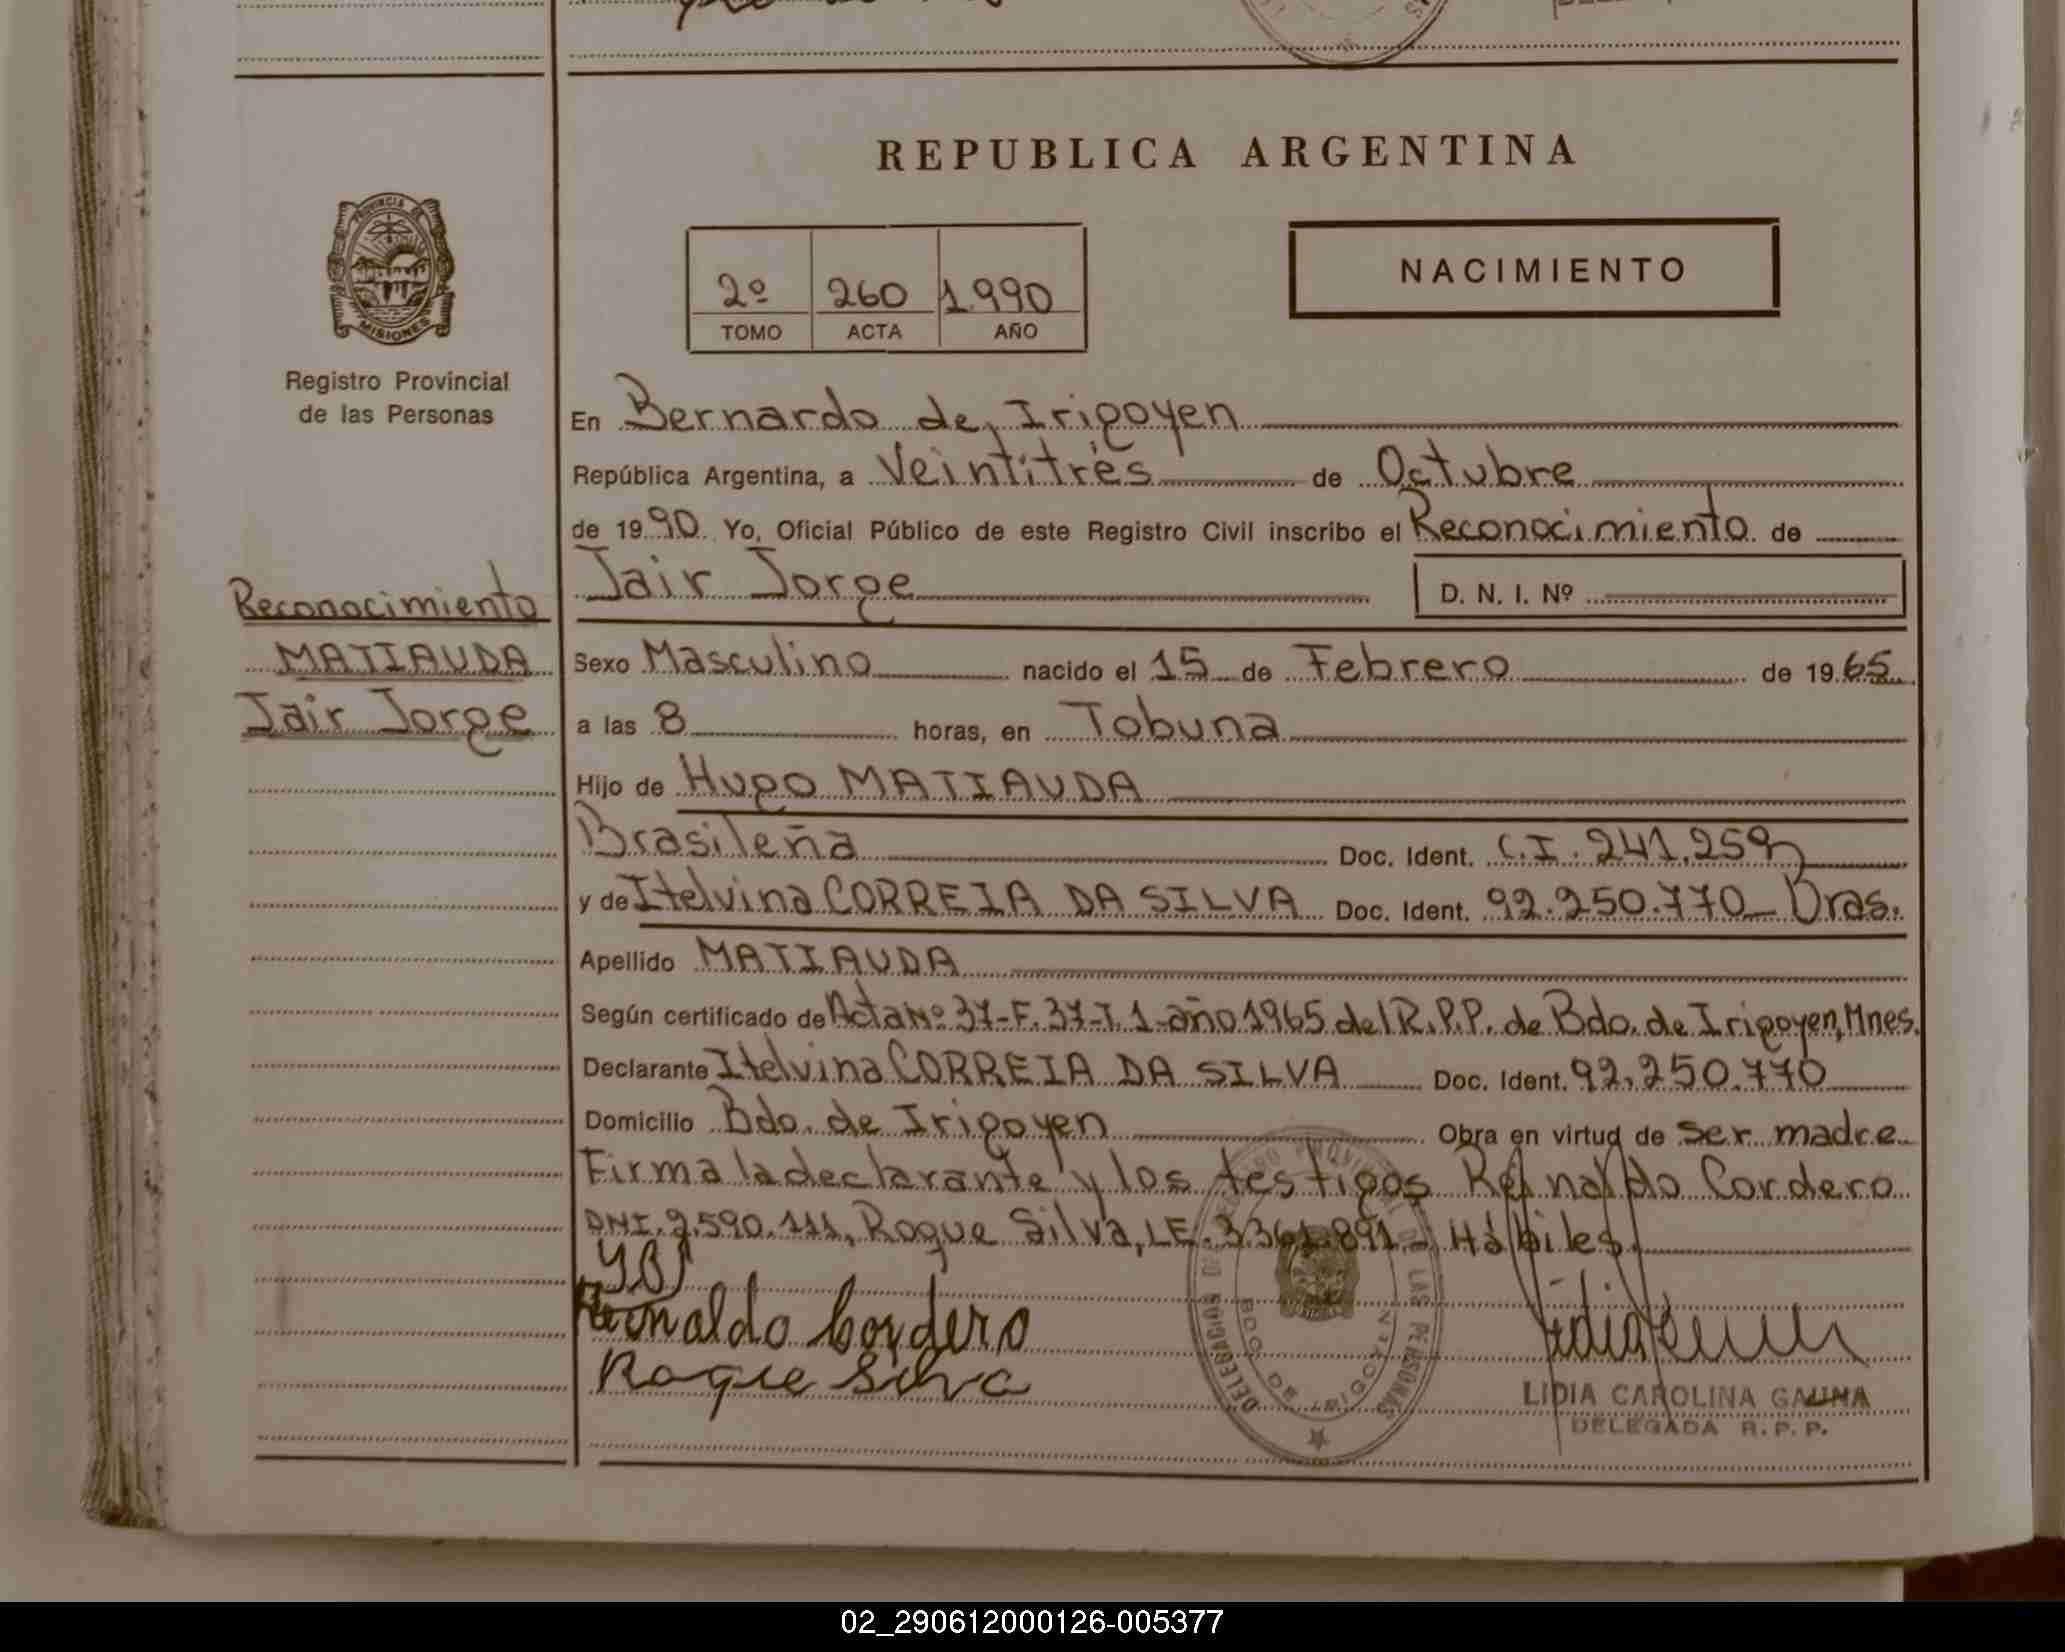 REPUBLICA ARGENTINA
PROVINCIA DE
MISIONES
Registro Provincial
de las Personas
2º 260 1.990
TOMO ACTA AÑO
NACIMIENTO
En Bernardo de Irigoyen
República Argentina, a Veintitrés de Octubre
de 1990 Yo, Oficial Público de este Registro Civil inscribo el Reconocimiento de
Jair Jorge D. N. I. Nº
Reconocimiento
MATIAUDA
Jair Jorge
Sexo Masculino nacido el 15 de Febrero de 1965
a las 8 horas, en Tobuna
Hijo de Hugo MATIAUDA
Brasileña Doc. Ident. C.I. 241.259
y de Itelvina CORREIA DA SILVA Doc. Ident. 92.250.770 Bras.
Apellido MATIAUDA
Según certificado de Acta Nº 37-F.37-T.1-año 1965 del R.P.P. de Bdo. de Irigoyen, Mnes.
Declarante Itelvina CORREIA DA SILVA Doc. Ident. 92.250.770
Domicilio Bdo. de Irigoyen Obra en virtud de ser madre
Firma la declarante y los testigos Reinaldo Cordero
DNI. 2.590.111, Roque Silva, LE. 3.361.891 - Hábiles.
Reinaldo Cordero
Roque Silva
DELEGACION REGISTRO PROVINCIAL DE LAS PERSONAS
BDO. DE IRIGOYEN
LIDIA CAROLINA GAUNA
DELEGADA R.P.P.
02_290612000126-005377